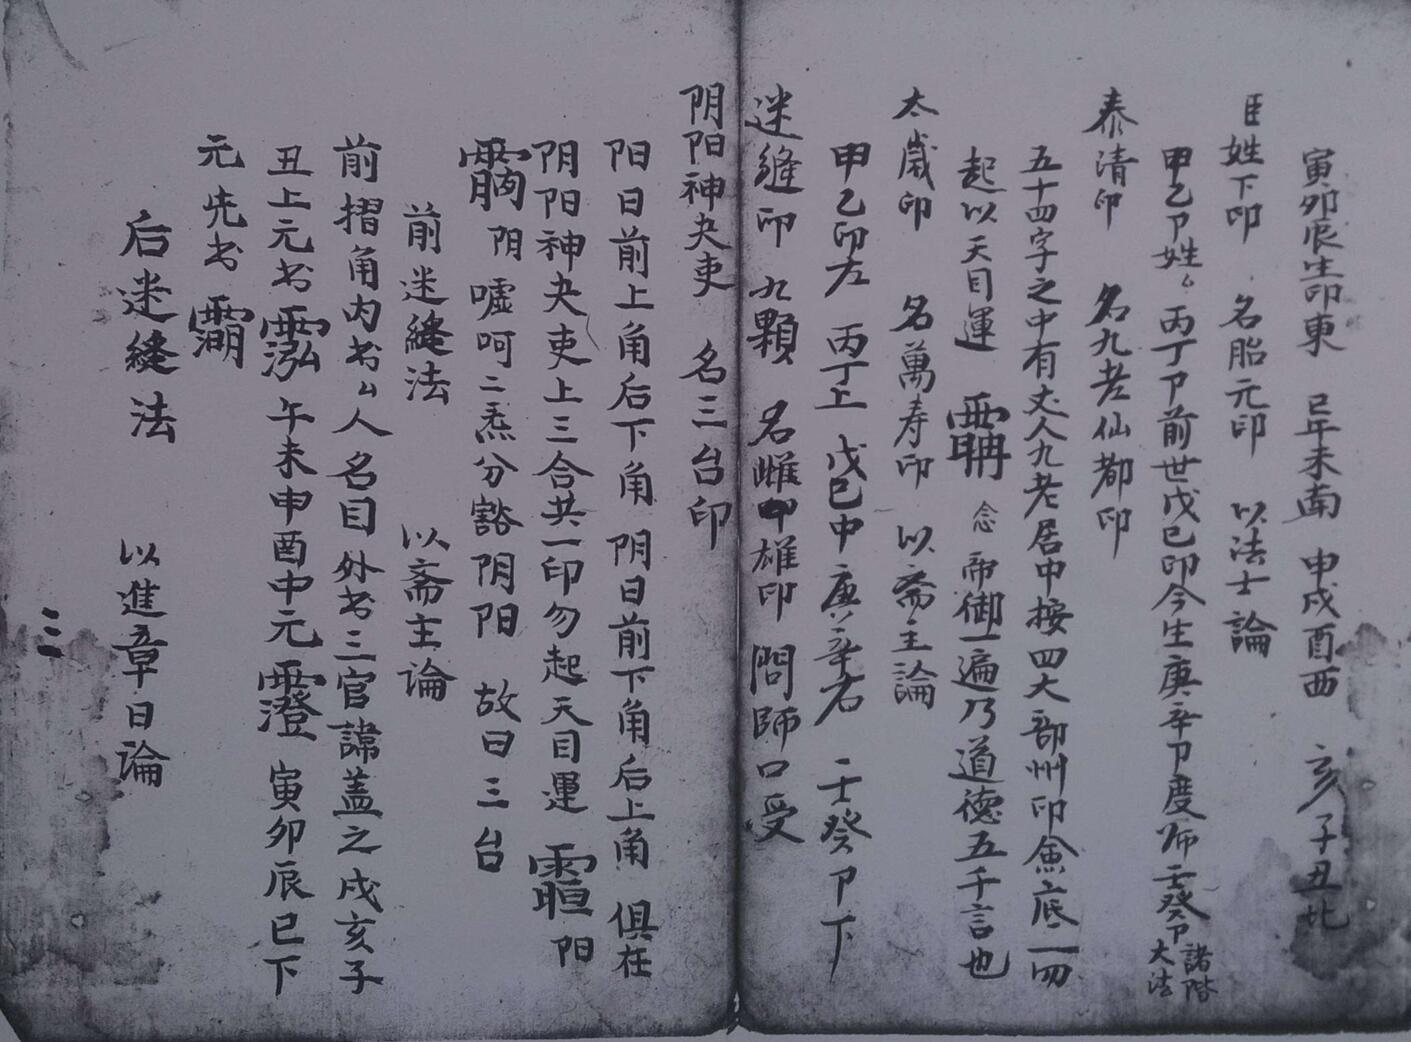 寅卯辰生印東 巳午未南 申戌酉西 亥子丑北
臣姓下印 名胎元印 以法士論
甲乙卩姓 丙丁卩前世戊己印今生庚辛卩度师壬癸卩諸階大法
泰清印 名九老仙都印
五十四字之中有丈人九老居中按四大部州印魚底一切
起以天目運 念 帝御一遍乃道德五千言也
太歲印 名萬寿印 以斋主論
甲乙印左 丙丁上 戊己中庚辛右 壬癸卩下
迷縫印 九顆 名雌印雄印 問師口受
阴阳神夬吏 名三台印
阳日前上角后下角 阴日前下角后上角 俱在
阴阳神夬吏上三合共一印勿起天目運 阳
阴嘘呵二炁分豁阴阳 故曰三台
前迷縫法 以斋主論
前摺角内书人名目外书三官諱盖之戌亥子
丑上元书 午未申酉中元 寅卯辰巳下
元先书
后迷縫法 以進章日論
三